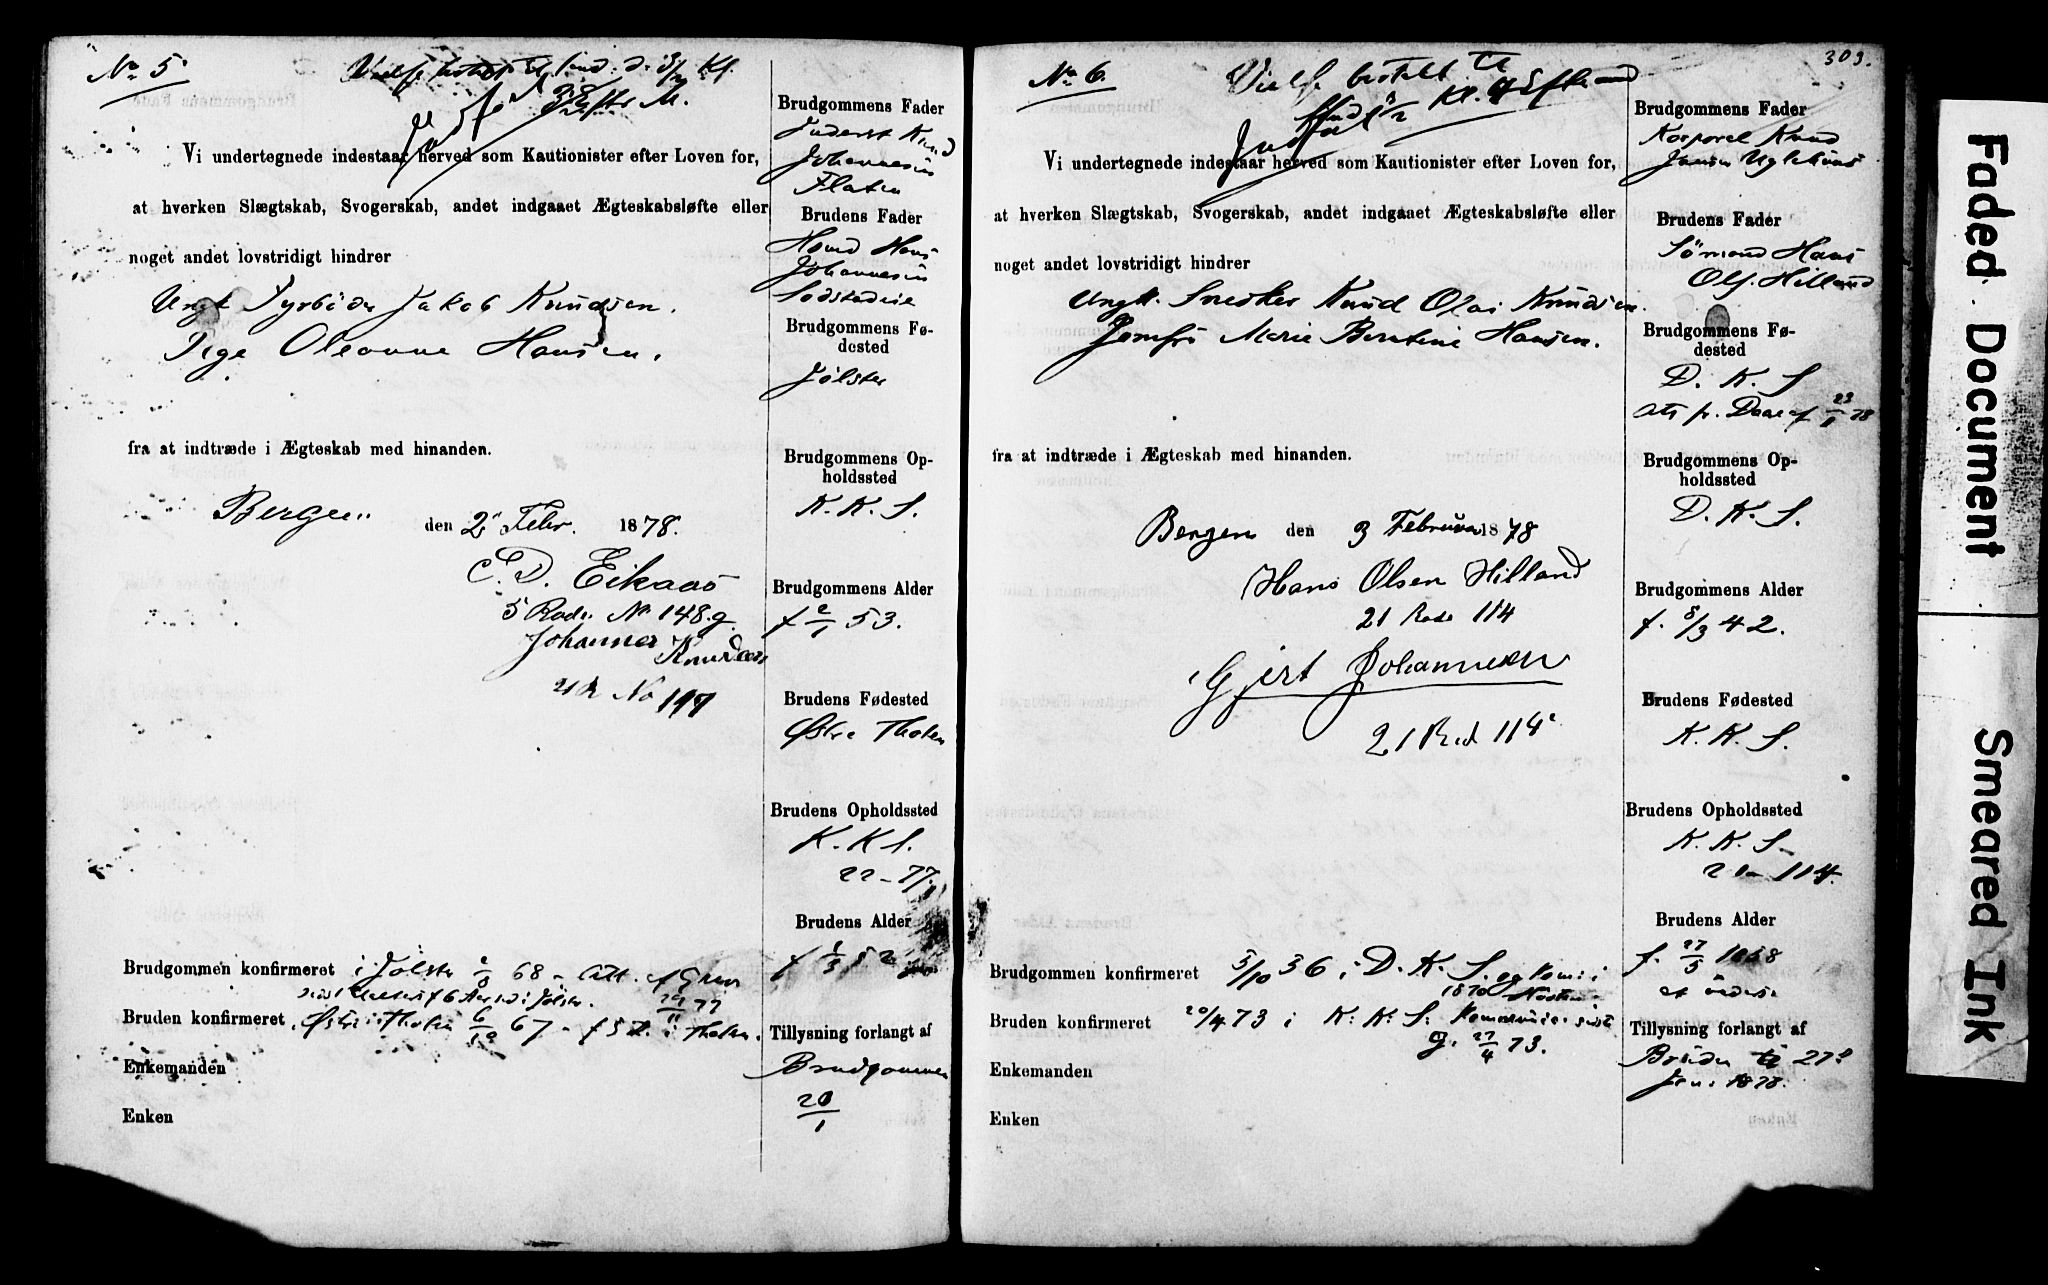 No 5
Brudgommens Fader
Johannesen
Flaten
Vi undertegnede indestaar herved som Kautionister efter Loven for,
at hverken Slægtskab, Svogerskab, andet indgaaet Ægteskabsløfte eller
noget andet lovstridigt hindrer
Brudens Fader
Hans
Johannesen
Ungk Fyrbøder Jakob Knudsen.
Pige Oleanne Hansen.
Brudgommens Fø-
dested
Jølster
fra at indtræde i Ægteskab med hinanden.
Brudgommens Op-
holdssted
K. K. S.
Bergen den 2 Febr. 1878.
E. D. Eikaas
5 Rode No 148.g.
Johannes Knudsen
21 R No 117
Brudgommens Alder
f 2/1 53.
Brudens Fødested
Østre Thoten
Brudens Opholdssted
K. K. S.
22 - 77.
Brudens Alder
f 1/3 52
Brudgommen konfirmeret i Jølster 68 - Att. f
Bruden konfirmeret Østre Thoten 67 - i Thoten.
Enkemanden
Enken
Tillysning forlangt af
Brudgommen
20/1
303.
No 6.
Vielse bestilt til
Brudgommens Fader
Korporal Knud
Jansen
Vi undertegnede indestaar herved som Kautionister efter Loven for,
at hverken Slægtskab, Svogerskab, andet indgaaet Ægteskabsløfte eller
noget andet lovstridigt hindrer
Brudens Fader
Sømand Hans
Ols. Hilland
Ungk. Snedker Knud Olai Knudsen.
Jomfru Marie Berntine Hansen.
Brudgommens Fø-
dested
D. K. S
att fr. 23/1 78
fra at indtræde i Ægteskab med hinanden.
Brudgommens Op-
holdssted
D. K. S.
Bergen den 3 Februar 1878
Hans Olsen Hilland
21 Rode 114
Gjert Johannesen
21 Rod 114
Brudgommens Alder
f. 8/3 42.
Brudens Fødested
K. K. S.
Brudens Opholdssted
K. K. S.
21 - 114.
Brudens Alder
f. 27/5 1858
Brudgommen konfirmeret 5/10 36 i D. K. S.
1870
Bruden konfirmeret 20/4 73 i K. K. S.
27/4 73.
Enkemanden
Enken
Tillysning forlangt af
Bruden 27
Jan. 1878.
Faded Document
Smeared Ink